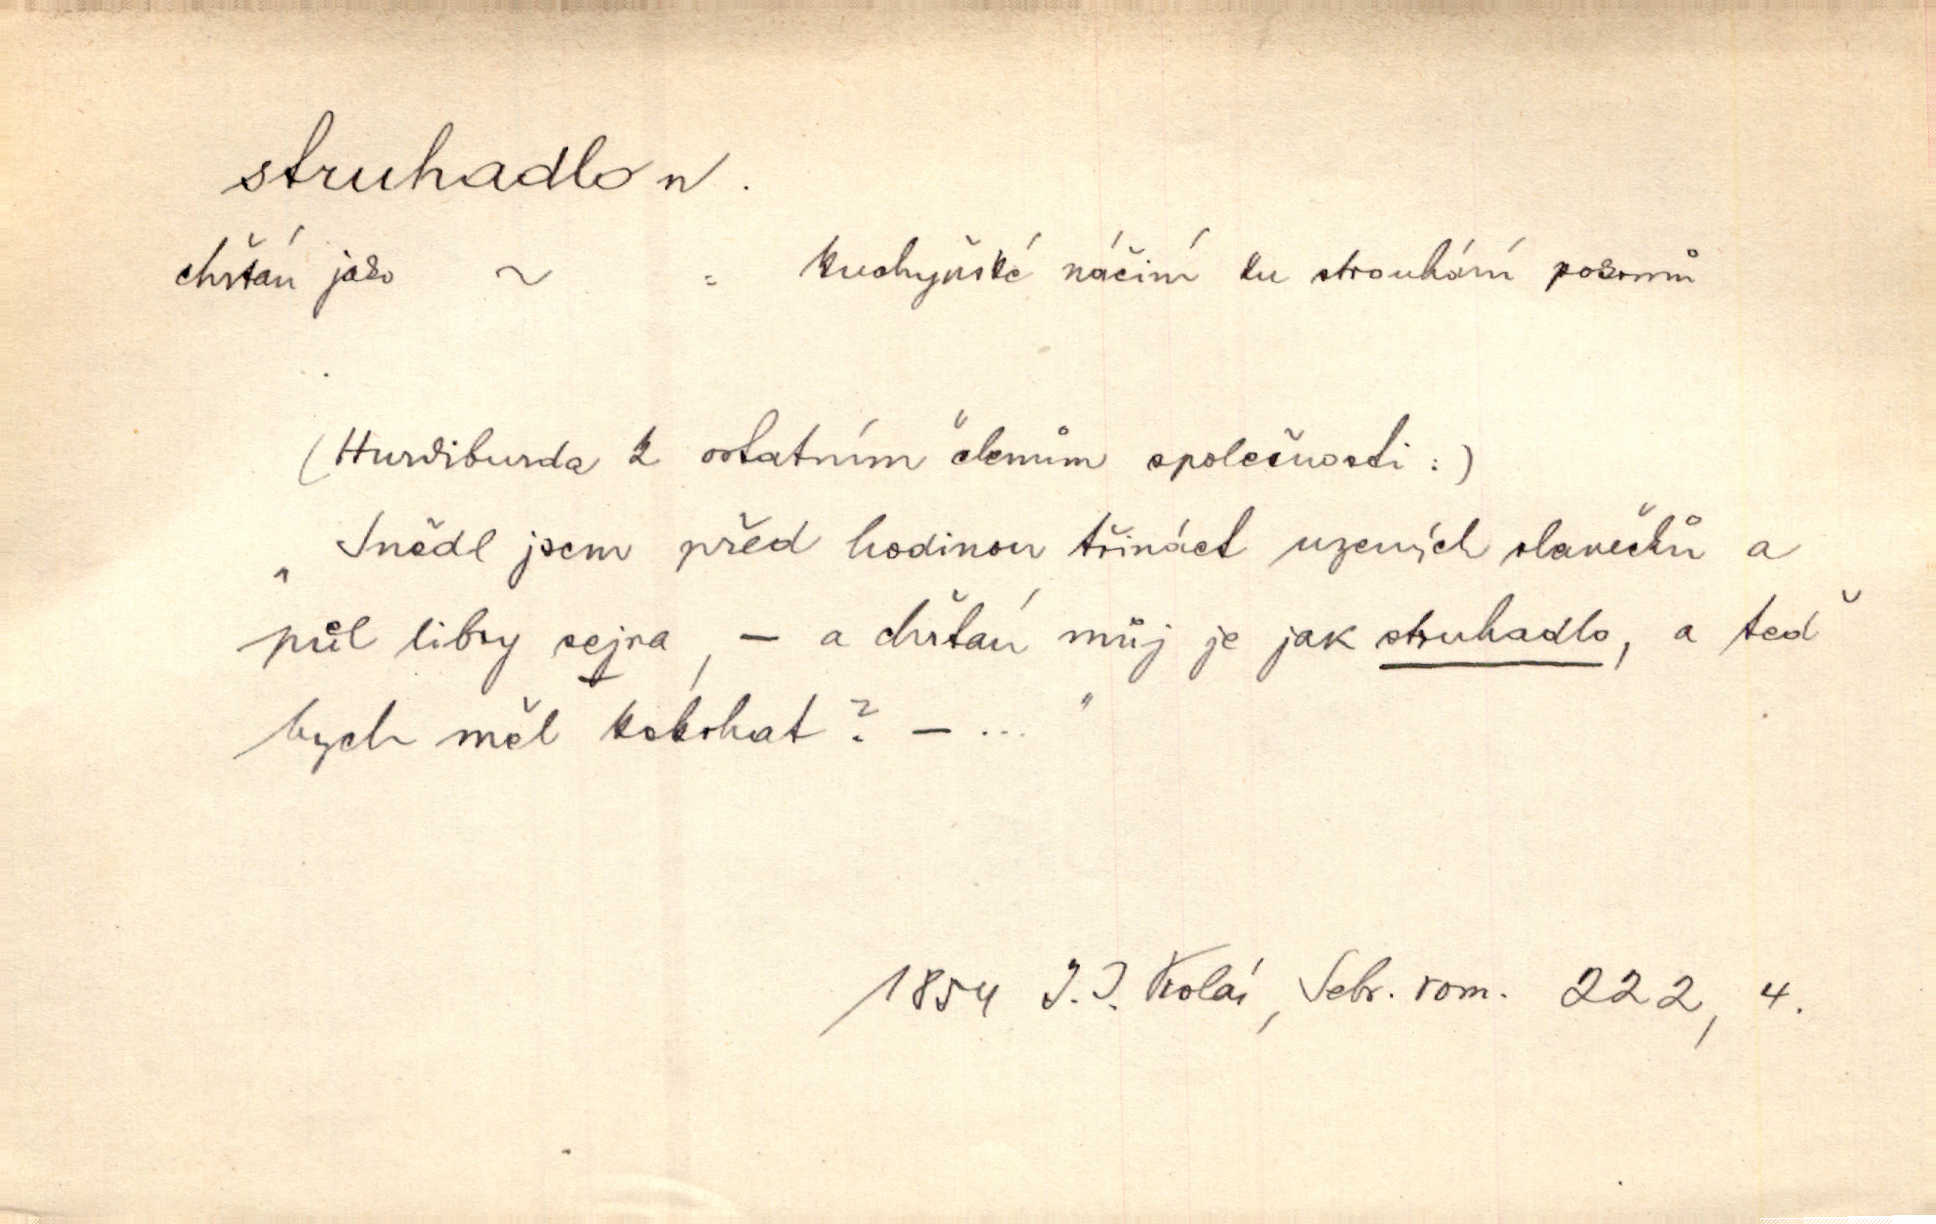 struhadlo n.
chřtán jako ~ = kuchyňské náčiní ku strouhání pokrmů
(Hurdiburda k ostatním členům společnosti:)
„Snědl jsem před hodinou třináct uzených slanečků a
půl libry sejra, – a chřtán můj je jak struhadlo, a teď
bych měl kokrhat? – ..."
1854 J. J. Kolár, Sebr. rom. 222, 4.